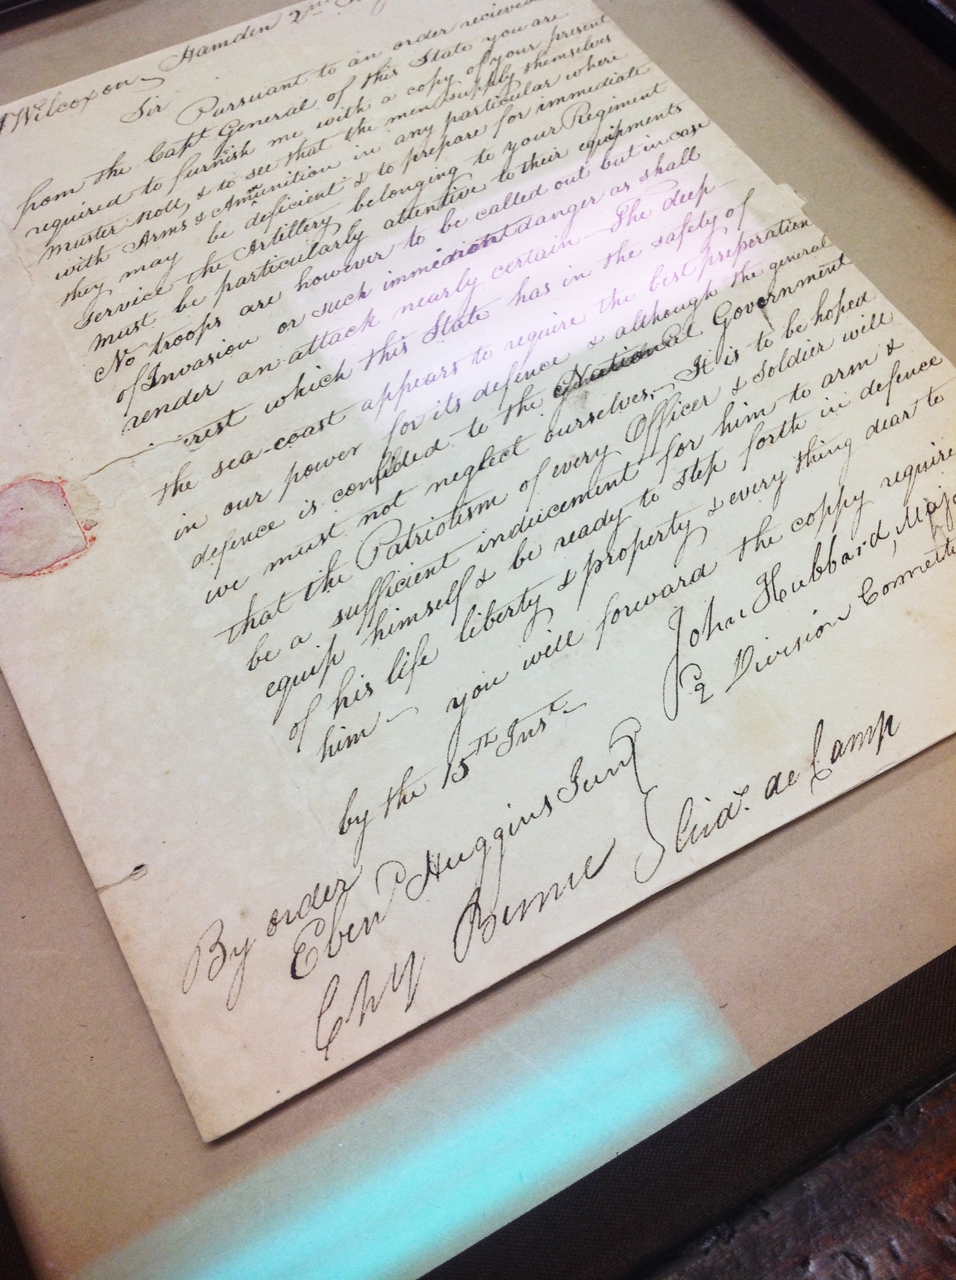 Wilcoxon Hamden 2nd
Sir Pursuant to an order recieved
from the Capt General of this State you are
required to furnish me with a copy of your present
muster roll, & to see that the men supply themselves
with Arms & Amunition in any particular where
they may be deficient & to prepare for immediate
service the Artillery belonging to your Regiment
must be particularly attentive to their equipments
No troops are however to be called out but in case
of Invasion or such immediant danger as shall
render an attack nearly certain — The deep
rest which this State has in the safety of
the sea-coast appears to require the best preperation
in our power for its defence & although the general
defence is confided to the National Government
we must not neglect ourselves. It is to be hoped
that the Patriotism of every Officer & Soldier will
be a sufficient inducement for him to arm &
equip himself & be ready to step forth in defence
of his life liberty & property & every thing dear to
him — you will forward the coppy require
by the 15th Inst.
John Hubbard, Maj
2 Division Connecti
By order
Eben Huggins Junr
Chy Bernie de Camp